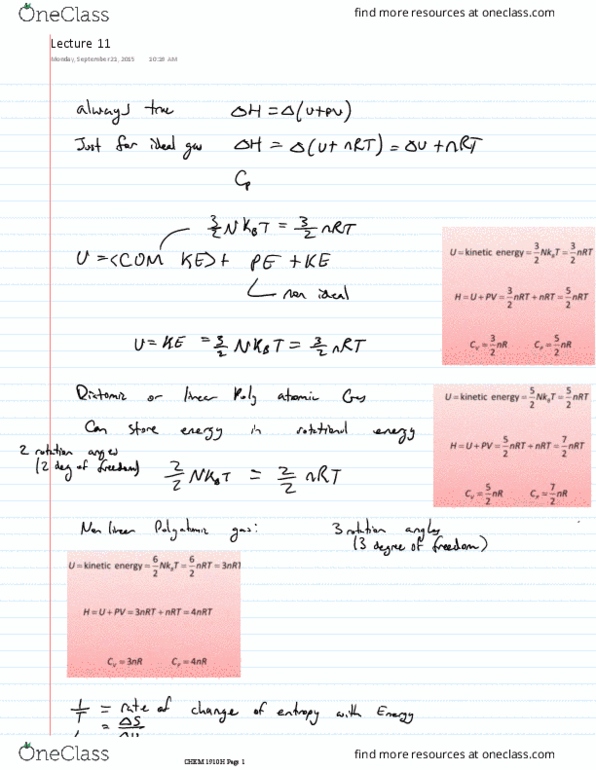 OneClass
find more resources at oneclass.com
Lecture 11
Monday, September 21, 2015 10:28 AM
always true ΔH = Δ(U+PV)
Just for ideal gas ΔH = Δ(U+ nRT) = ΔU + nRT
Cp
3/2 N K_B T = 3/2 nRT
U = <COM KE> + PE + KE
non ideal
U = kinetic energy = 3/2 Nk_BT = 3/2 nRT
H = U + PV = 3/2 nRT + nRT = 5/2 nRT
C_V = 3/2 nR C_P = 5/2 nR
U = KE = 3/2 N K_B T = 3/2 nRT
Diatomic or linear Poly atomic Gas
Can store energy in rotational energy
2 rotation angles
(2 deg of freedom) 2/2 N K_B T = 2/2 nRT
U = kinetic energy = 5/2 Nk_BT = 5/2 nRT
H = U + PV = 5/2 nRT + nRT = 7/2 nRT
C_V = 5/2 nR C_P = 7/2 nR
Non linear Polyatomic gas: 3 rotation angles
(3 degree of freedom)
U = kinetic energy = 6/2 Nk_BT = 6/2 nRT = 3nRT
H = U + PV = 3nRT + nRT = 4nRT
C_V = 3nR C_P = 4nR
1/T = rate of change of entropy with Energy
= ΔS
OneClass
CHEM 1910H Page 1
find more resources at oneclass.com